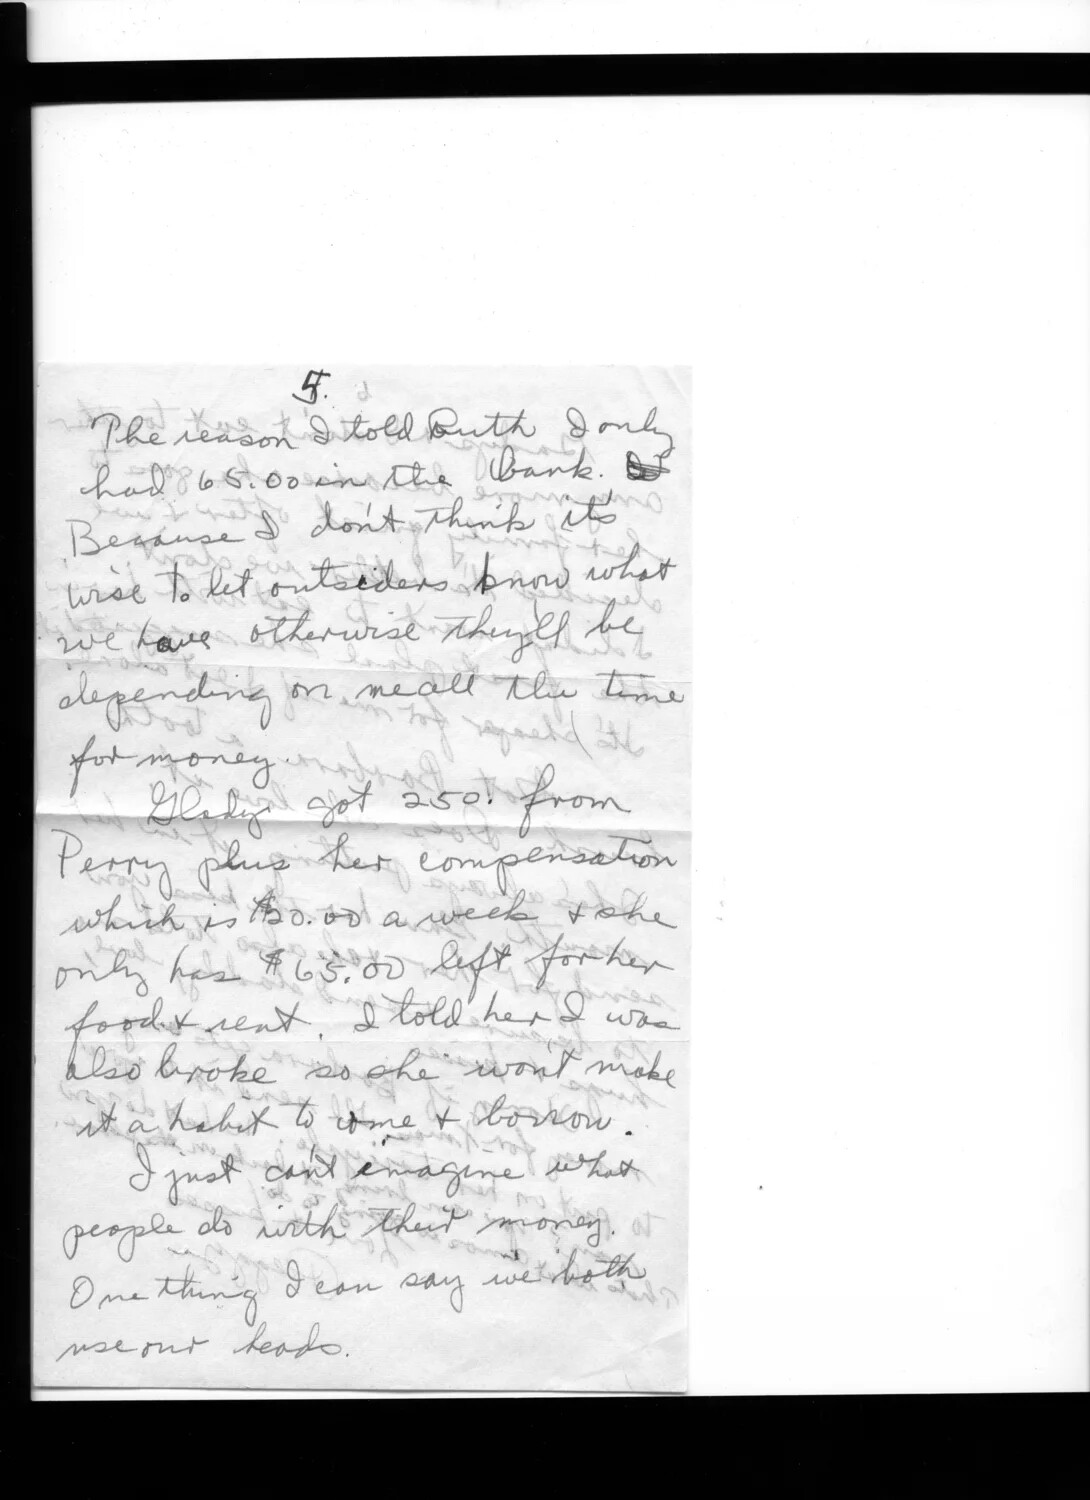 5.
The reason I told Ruth I only
had 65.00 in the bank.
Because I don't think it's
wise to let outsiders know what
we have otherwise they'll be
depending on me all the time
for money.
Gladys got 250. from
Perry plus her compensation
which is $20.00 a week & she
only has $65.00 left for her
food & rent. I told her I was
also broke so she won't make
it a habit to come & borrow.
I just can't imagine what
people do with their money.
One thing I can say we both
use our heads.